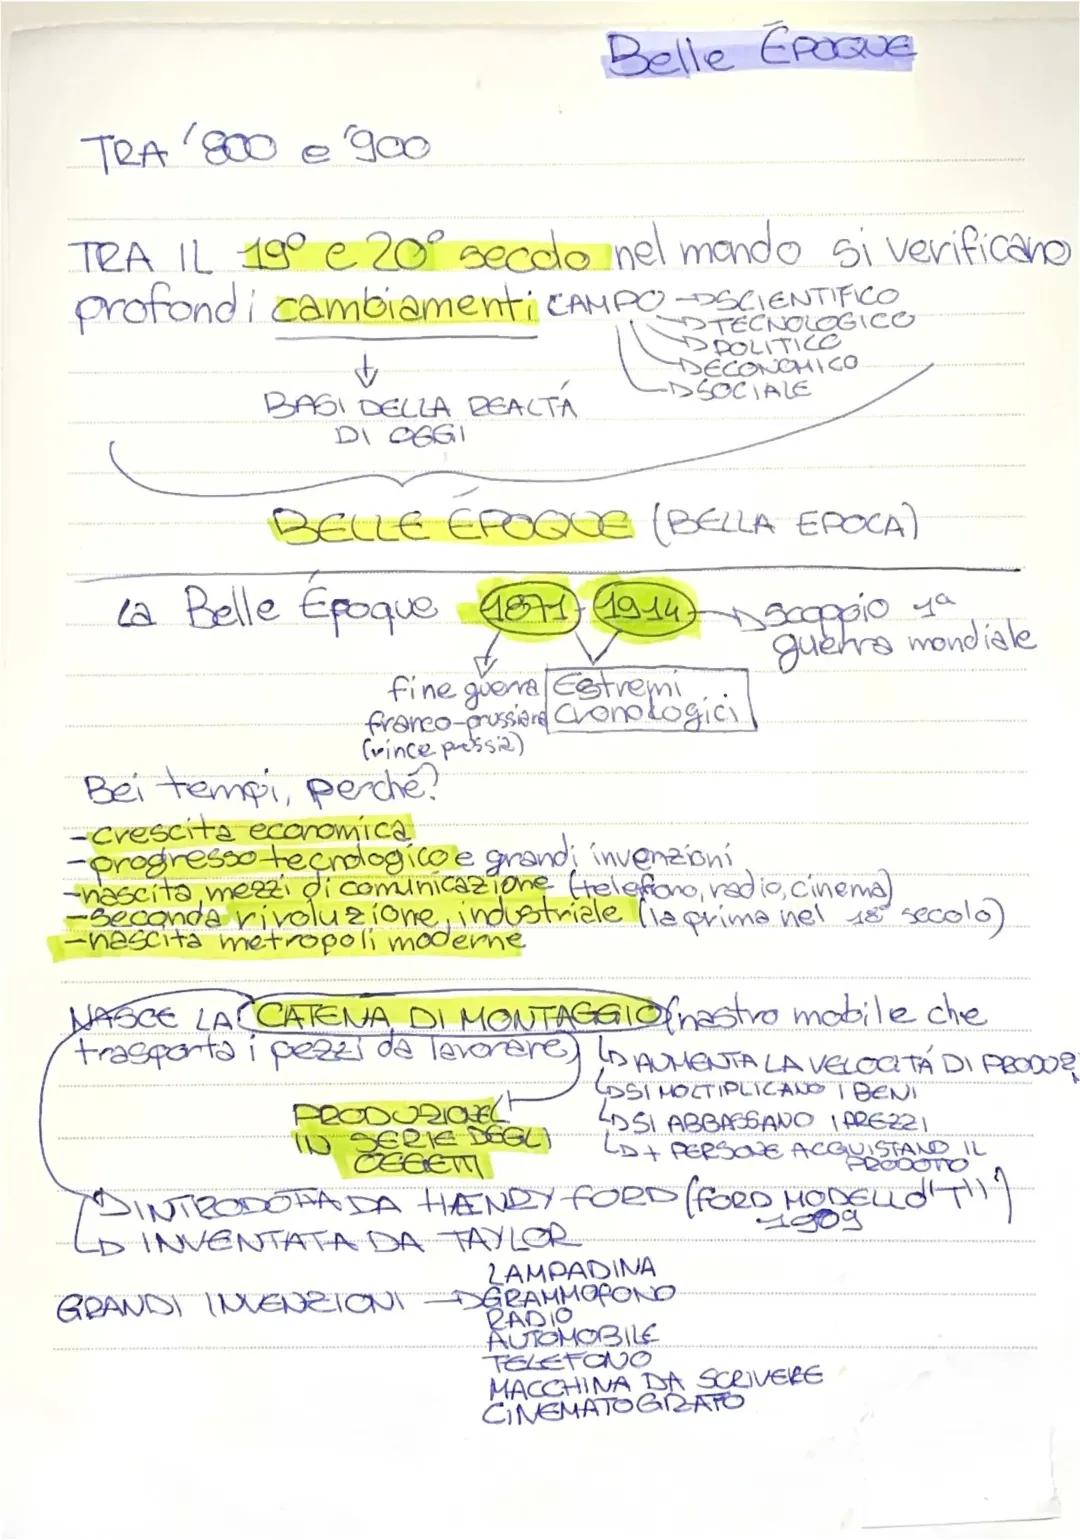 Belle ÉPOQUE
TRA '800 e '900
TRA IL 19° e 20° secolo nel mondo si verificano
profondi cambiamenti CAMPO → SCIENTIFICO
→ TECNOLOGICO
→ POLITICO
→ ECONOMICO
→ SOCIALE
↓
BASI DELLA REALTÁ
DI OGGI
BELLE ÉPOQUE (BELLA EPOCA)
La Belle Époque 1871 - 1914 → scoppio 1ª
guerra mondiale
fine guerra
franco-prussiana
(vince prussia)
Estremi
cronologici
Bei tempi, perché?
- crescita economica
- progresso tecnologico e grandi invenzioni
- nascita mezzi di comunicazione (telefono, radio, cinema)
- seconda rivoluzione industriale (la prima nel 18° secolo)
- nascita metropoli moderne
NASCE LA CATENA DI MONTAGGIO (nastro mobile che
trasporta i pezzi da lavorare)
→ AUMENTA LA VELOCITÁ DI PRODUZ
→ SI MOLTIPLICANO I BENI
→ SI ABBASSANO I PREZZI
→ + PERSONE ACQUISTANO IL
PRODOTTO
PRODUZIONE
IN SERIE DEGLI
OGGETTI
→ INTRODOTTA DA HENRY FORD (FORD MODELLO "T")
1909
→ INVENTATA DA TAYLOR
GRANDI INVENZIONI → LAMPADINA
GRAMMOFONO
RADIO
AUTOMOBILE
TELEFONO
MACCHINA DA SCRIVERE
CINEMATOGRAFO